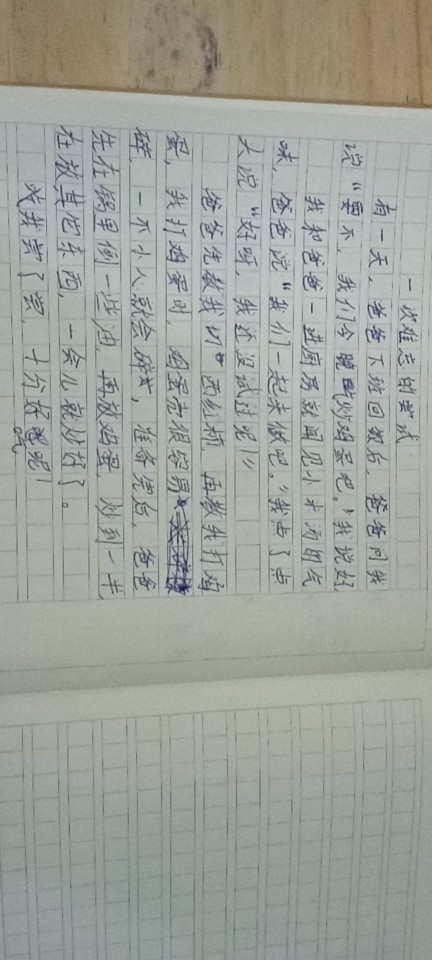 一次难忘的尝试
有一天，爸爸下班回家后，爸爸问我
说“要不，我们今晚吃炒鸡蛋吧。”我说好
我和爸爸一进厨房就闻见小米汤的气
味，爸爸说“我们一起来做吧。”我点了点
大说“好呀，我还没试过呢！”
爸爸先教我切西红柿，再教我打鸡
蛋，我打鸡蛋时，鸡蛋壳很容易
碎，一不小心就会碎，准备完后，爸爸
先在锅里倒一些油，再放鸡蛋，炒到一半
在放其它东西，一会儿就炒好了。
我尝了尝，十分好吃呢！